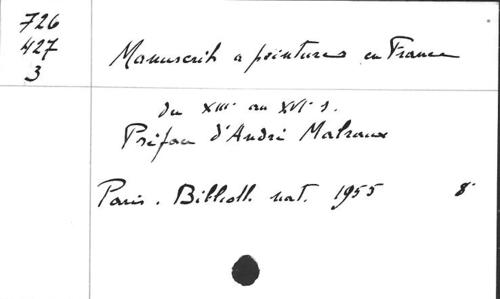 726
427
3
Manuscrits a peintures en France
du XIIIe au XVIe s.
Préface d'André Malraux
Paris. Biblioth. nat. 1955 8°